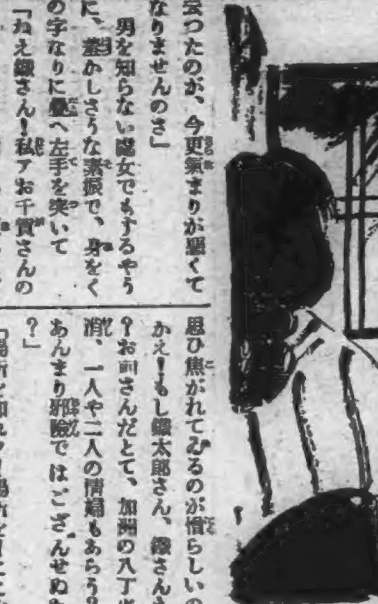 会つたのが、今更氣まりが悪くて
なりませんのさ』
男を知らない處女でもするやう
に、羞かしさうな素振で、身をく
の字なりに疊へ左手を突いて
『ねえ鐵さん！私アお千賀さんの
思ひ焦がれてゐるのが憎らしいの
かえ！もし鐵太郎さん、鐵さん
？お前さんだとて、加洲の八丁
消、一人や二人の情婦もあらう？
あんまり邪險ではござんせぬ
？』